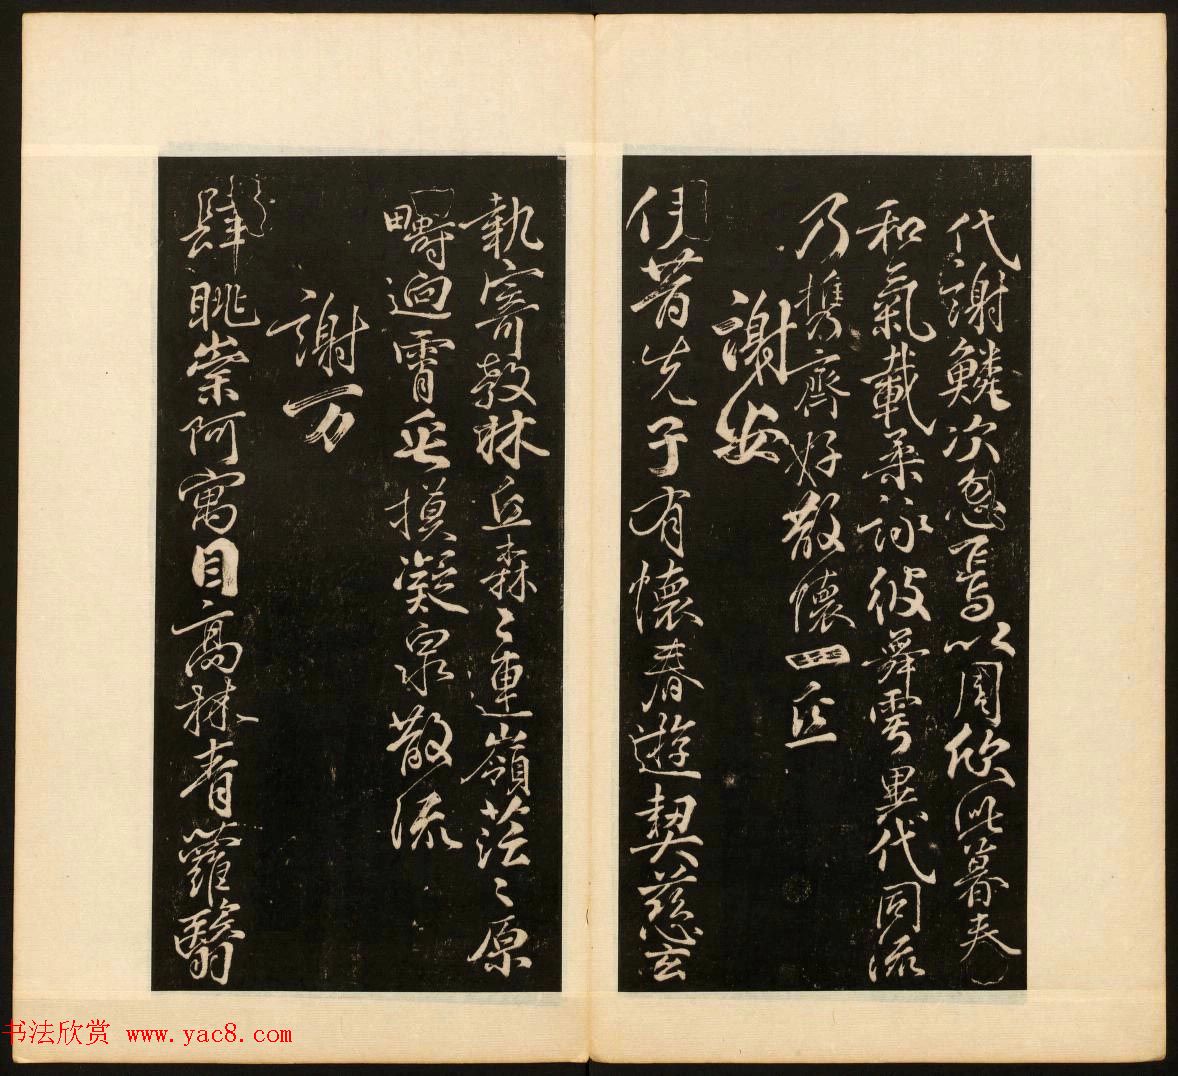 代謝鱗次忽焉以周欣此暮春
和氣載柔詠彼舞雩異代同流
乃携齊好散懷一丘
謝安
伊昔先子有懷春遊契慈玄
執寄敖林丘森〻連嶺茫〻原
疇迥霄垂摸凝泉散流
謝万
肆眺崇阿寓目高林青蘿翳
书法欣赏 www.yac8.com